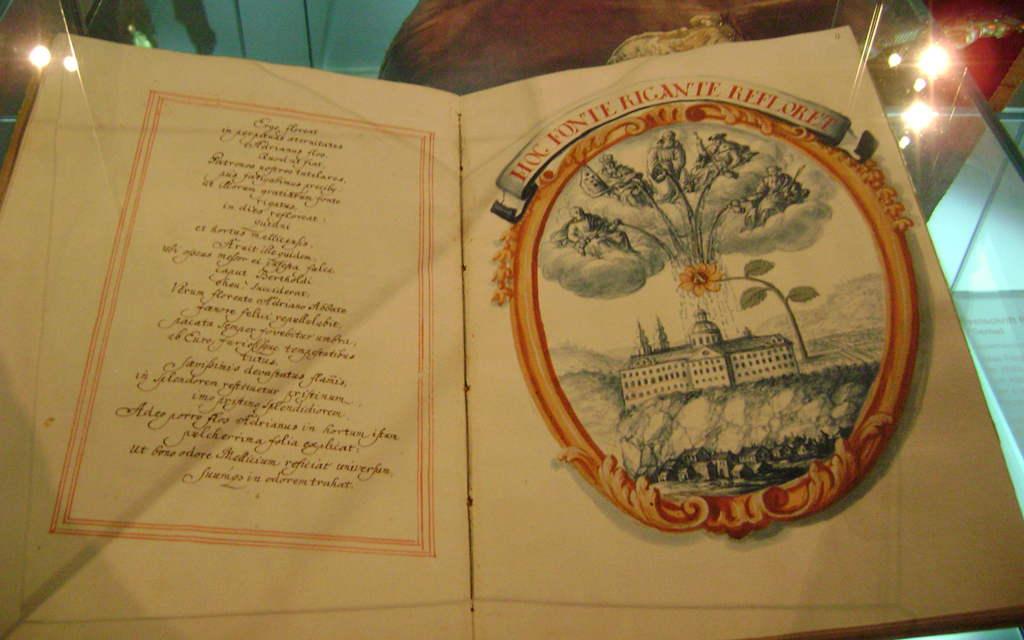 Ergo floreat
in perpetuas aeternitates
Adrianus flos.
Quod ut fiat,
Patronos nostros tutelares,
pijs fatigabimus precibus:
ut illorum gratiarum fonte
rigatus,
in dies refloreat;
quidni
et hortus mellicensis.
Aruit ille quidem,
ubi messor ei infesta falce
caput Bertholdi
succiderat;
Verum florente Adriano Abbate
foenore felici repullulabit,
pacata semper fovebitur umbra,
ab Euro, furiosisque tempestatibus
tutus.
Saevissimis devastatus flamis,
in splendorem restituetur pristinum,
imo pristino splendidiorem
Adeo porro flos Adrianus in hortum istum
pulcherrima folia explicat;
Ut bono odore Mellicium reficiat universum,
Suumque in odorem trahat.
HOC FONTE RIGANTE REFLORET